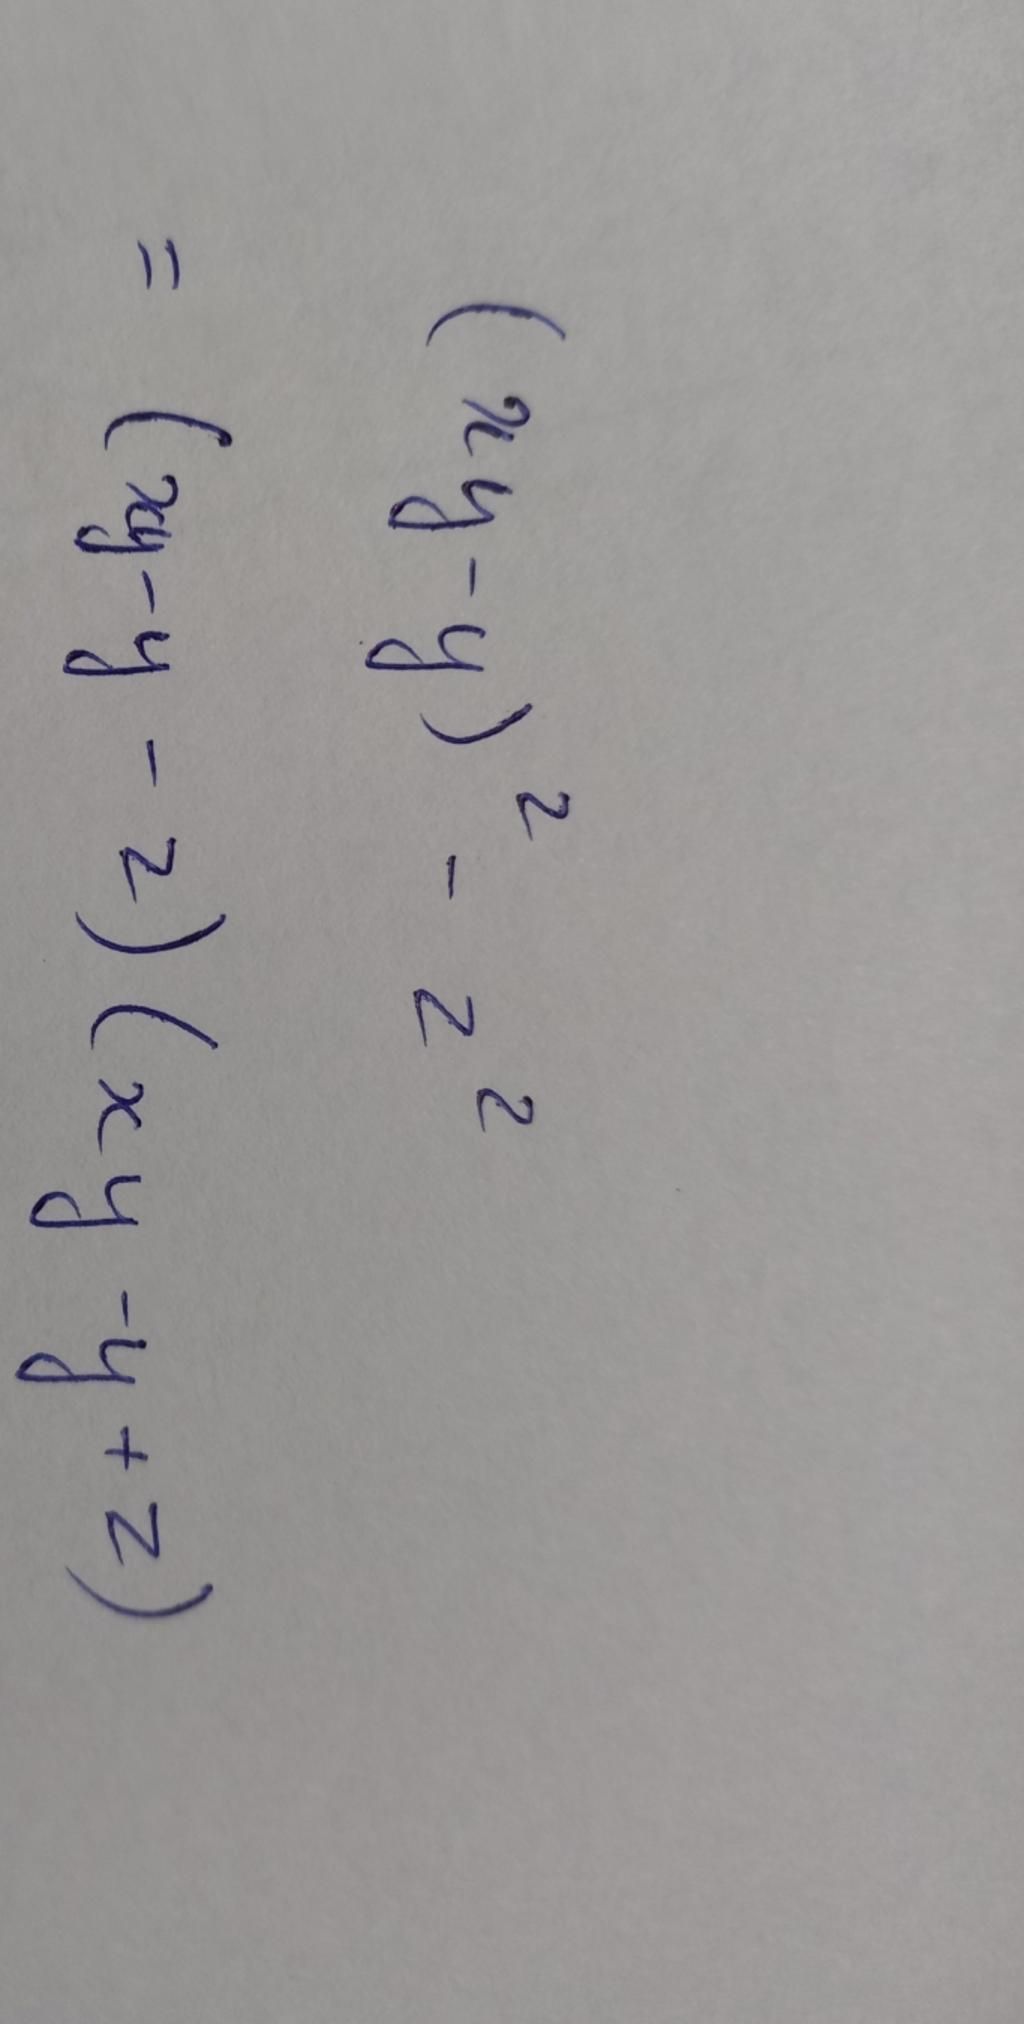 (xy-y)² - z²
= (xy-y - z)(xy-y+z)